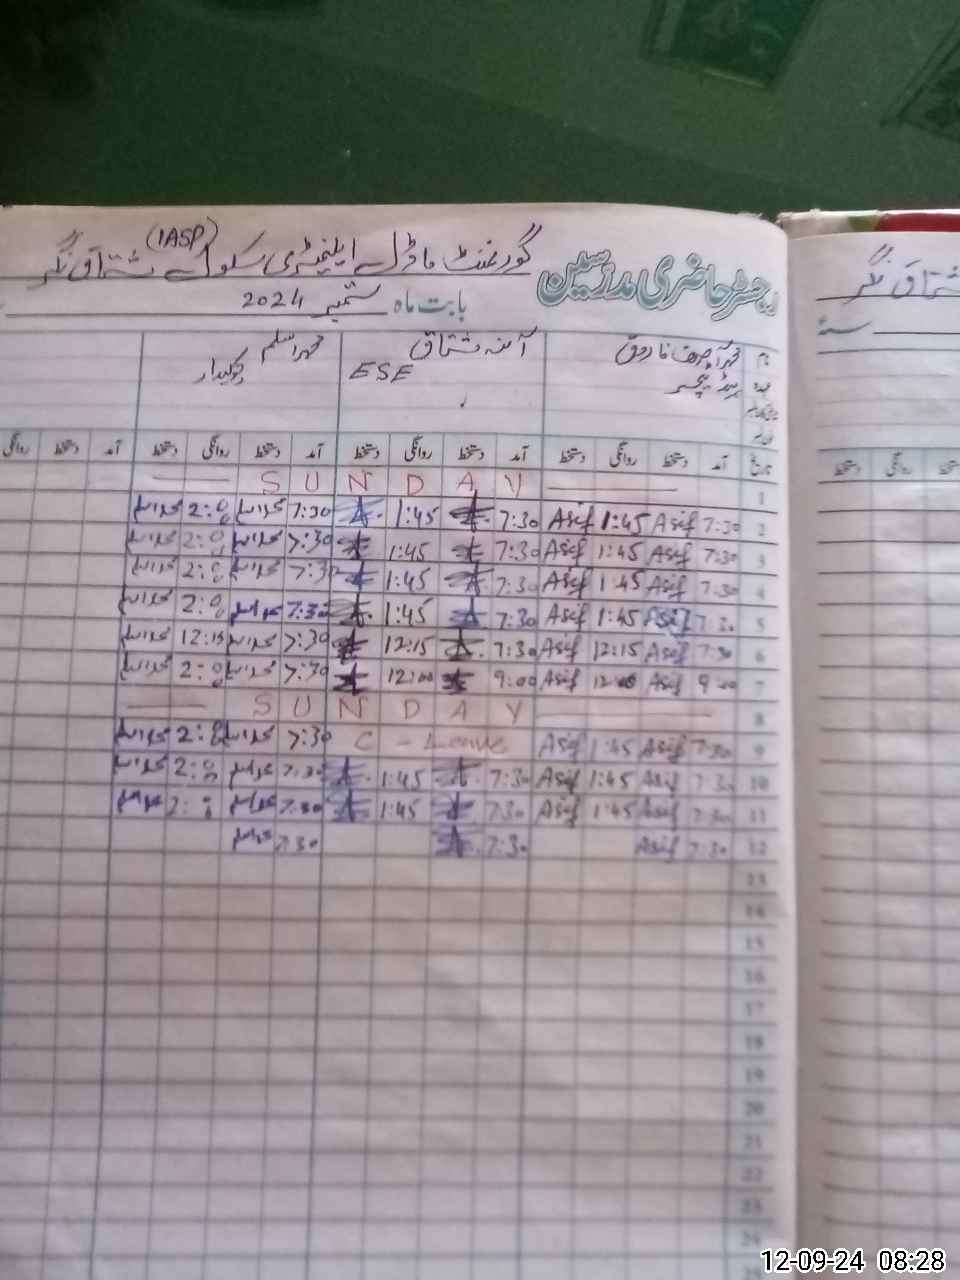 رجسٹر حاضری مدرسین گورنمنٹ ماڈل ایلیمنٹری سکول مشتاق نگر (IASP)
بابت ماہ ستمبر 2024
نام محمد آصف فاروق آمنہ مشتاق محمد اسلم
عہدہ ہیڈ ٹیچر ESE چوکیدار
تاریخ آمد دستخط روانگی دستخط آمد دستخط روانگی دستخط آمد دستخط روانگی دستخط آمد دستخط روانگی
1 SUNDAY
2 7:30 Asif 1:45 Asif 7:30 1:45 7:30 محمد اسلم 2:00 محمد اسلم
3 7:30 Asif 1:45 Asif 7:30 1:45 7:30 محمد اسلم 2:00 محمد اسلم
4 7:30 Asif 1:45 Asif 7:30 1:45 7:30 محمد اسلم 2:00 محمد اسلم
5 7:30 Asif 1:45 Asif 7:30 1:45 7:30 محمد اسلم 2:00 محمد اسلم
6 7:30 Asif 12:15 Asif 7:30 12:15 7:30 محمد اسلم 12:15 محمد اسلم
7 9:00 Asif 12:00 Asif 9:00 12:00 7:30 محمد اسلم 2:00 محمد اسلم
8 SUNDAY
9 7:30 Asif 1:45 Asif C - Leave 7:30 محمد اسلم 2:00 محمد اسلم
10 7:30 Asif 1:45 Asif 7:30 1:45 7:30 محمد اسلم 2:00 محمد اسلم
11 7:30 Asif 1:45 Asif 7:30 1:45 7:30 محمد اسلم 2:00 محمد اسلم
12 7:30 Asif 7:30 7:30 محمد اسلم
13
14
15
16
17
18
19
20
21
22
23
24
مشتاق نگر
سنہ
دستخط روانگی
12-09-24 08:28